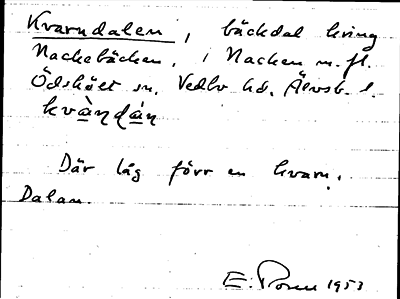 Kvarndalen, bäckdal kring
Nackebäcken, i Nacken m. fl.
Ödskölt sn. Vedbo hd. Älvsb. l.
kvàndán
Där låg förr en kvarn.
Dalan.
E. 1953